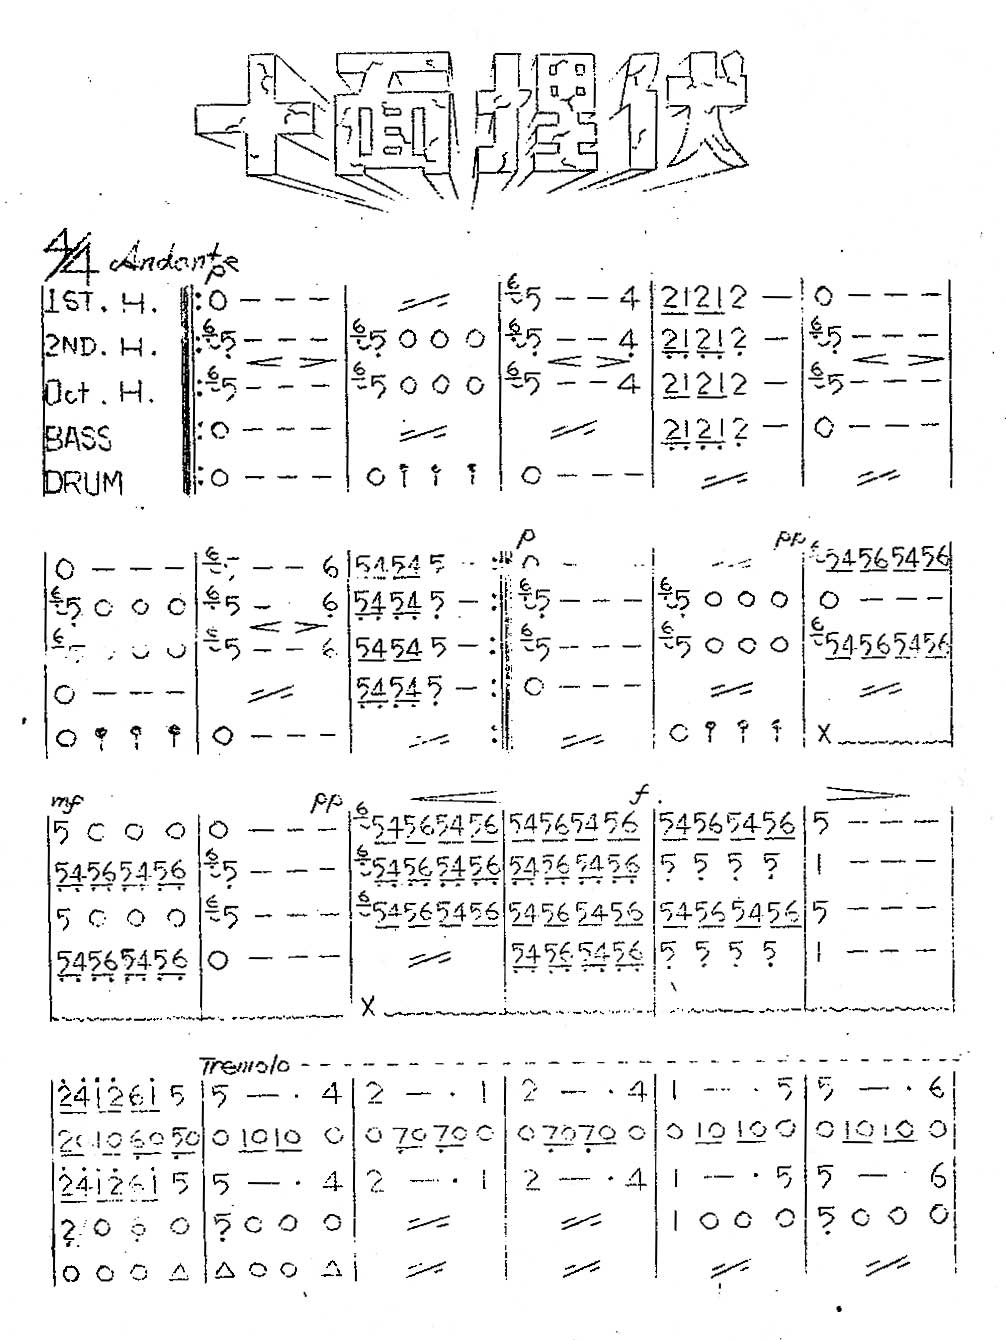 十面埋伏
4/4 Andante
p
1ST. H. ‖: 0 - - - | 〃 | 6 5 - - 4 | 21212 - | 0 - - - |
2ND. H. : 6 5 - - - | 6 5 0 0 0 | 6 5 - - 4 | 21212 - | 6 5 - - - |
Oct. H. 6 5 - - - | 6 5 0 0 0 | 6 5 - - 4 | 21212 - | 6 5 - - - |
BASS : 0 - - - | 〃 | 〃 | 21212 - | 0 - - - |
DRUM : 0 - - - | 0 | 0 - - - | 〃 | 〃 |
p pp
0 - - - | 6 - - 6 | 54545 - : | 0 - | 〃 | 6 54565456 |
6 5 0 0 0 | 6 5 - 6 | 54545 - : | 6 5 - - - | 6 5 0 0 0 | 0 - - - |
6 | 6 5 - - 6 | 54545 - : | 6 5 - - - | 6 5 0 0 0 | 6 54565456 |
0 - - - | 〃 | 54545 - : | 0 - - - | 〃 | 〃 |
0 | 0 - - - | 〃 : | 〃 | 0 | X
mf pp f.
5 0 0 0 | 0 - - - | 6 54565456 | 54565456 | 54565456 | 5 - - - |
54565456 | 6 5 - - - | 6 54565456 | 54565456 | 5 5 5 5 | 1 - - - |
5 0 0 0 | 6 5 - - - | 6 54565456 | 54565456 | 54565456 | 5 - - - |
54565456 | 0 - - - | 〃 | 54565456 | 5 5 5 5 | 1 - - - |
X
Tremolo
2412615 | 5 - · 4 | 2 - · 1 | 2 - · 4 | 1 - · 5 | 5 - · 6 |
20106050 | 0 1010 0 | 0 7070 0 | 0 7070 0 | 0 1010 0 | 0 1010 0 |
2412615 | 5 - · 4 | 2 - · 1 | 2 - · 4 | 1 - · 5 | 5 - 6 |
2 0 0 0 | 5 0 0 0 | 〃 | 〃 | 1 0 0 0 | 5 0 0 0 |
0 0 0 △ | △ 0 0 △ | 〃 | 〃 | 〃 | 〃 |